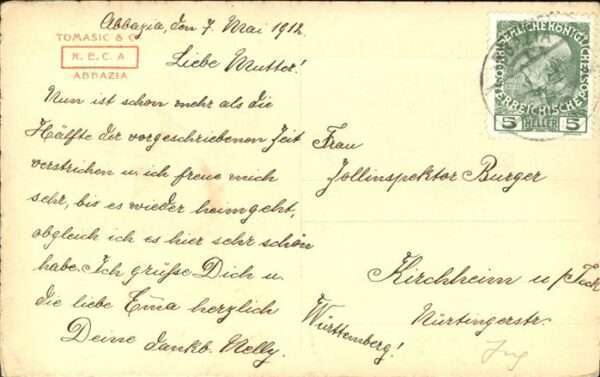 Abbazia, den 7. Mai 1912.
TOMASIC & Co
R. E. C. A.
ABBAZIA
Liebe Mutter!
Nun ist schon mehr als die
Hälfte der vorgeschriebenen Zeit
verstrichen u. ich freue mich
sehr, bis es wieder heimgeht,
obgleich ich es hier sehr schön
habe. Ich grüße Dich u.
die liebe Ema herzlich
Deine dankb. Nelly.
5 HELLER 5
Frau
Zollinspektor Burger
Kirchheim u/Teck
Nürtingerstr.
Württemberg!